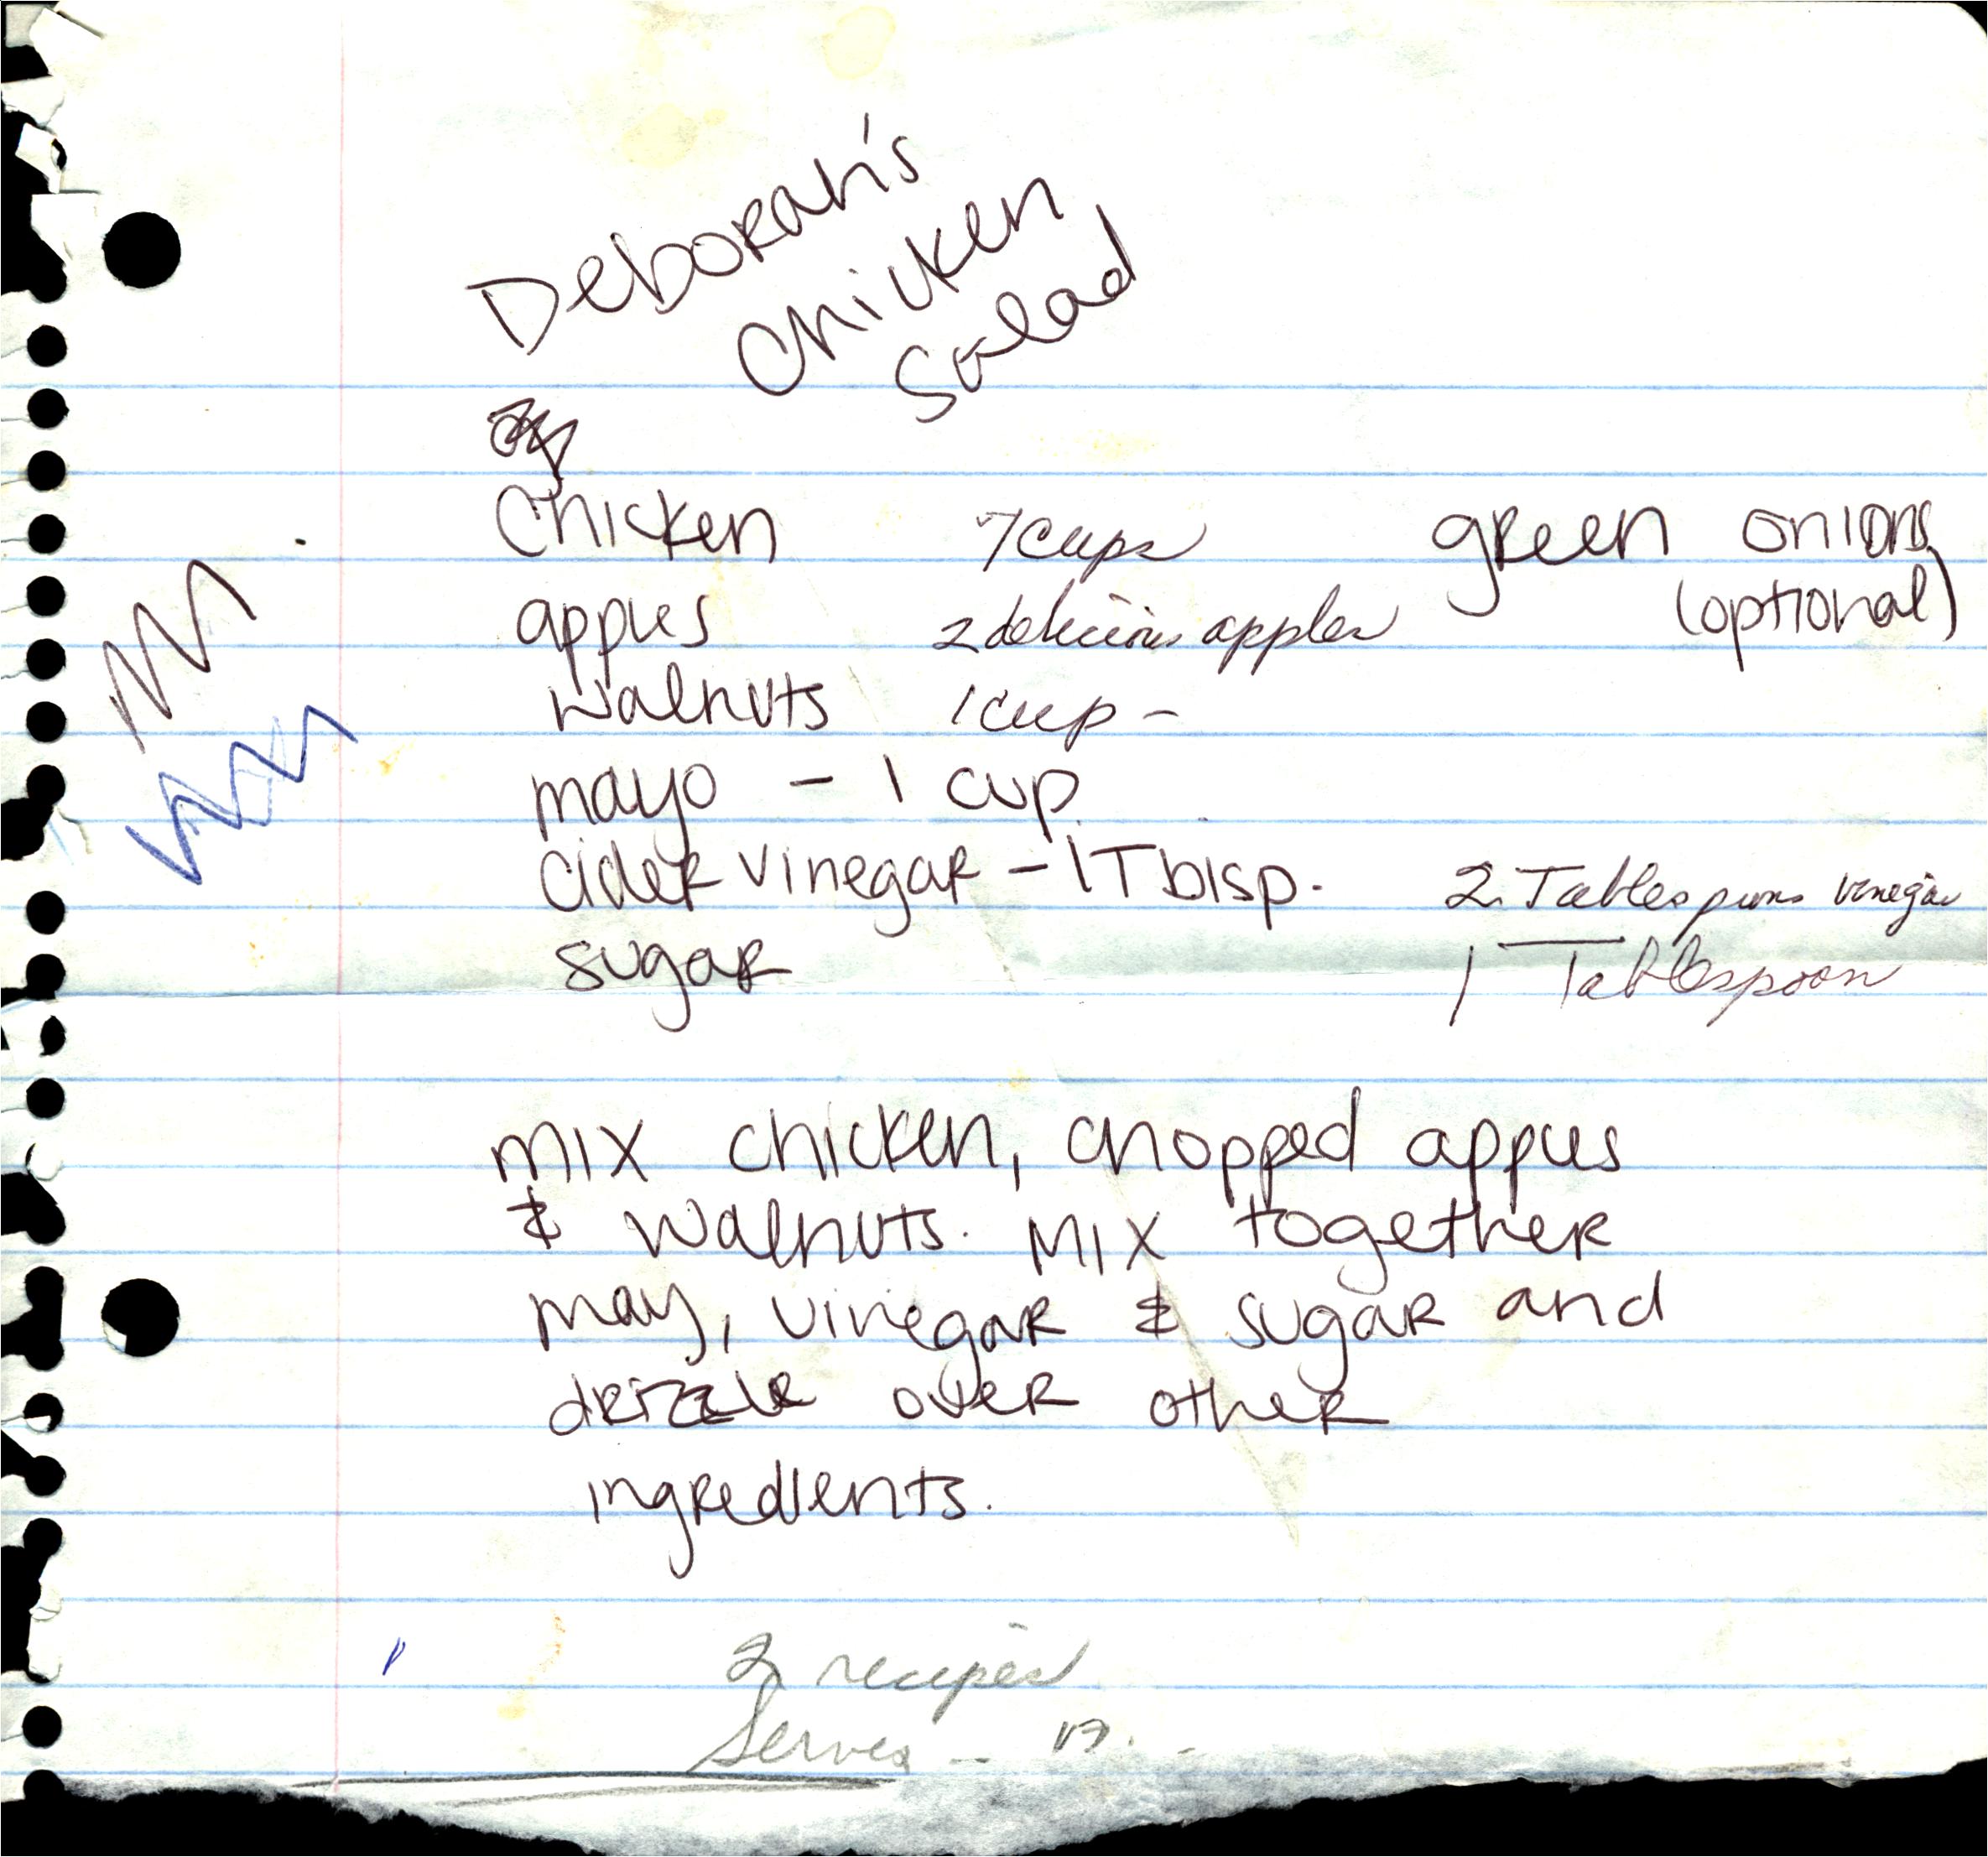 Deborah's
Chicken
Salad
Chicken 7 cups green onions
(optional)
apples 2 delicious apples
walnuts 1 cup -
mayo - 1 cup
cider vinegar - 1 Tblsp. 2 Tablespoons vinegar
sugar 1 Tablespoon
mix chicken, chopped apples
& walnuts. Mix together
may, vinegar & sugar and
drizzle over other
ingredients.
2 recipes
Serves -